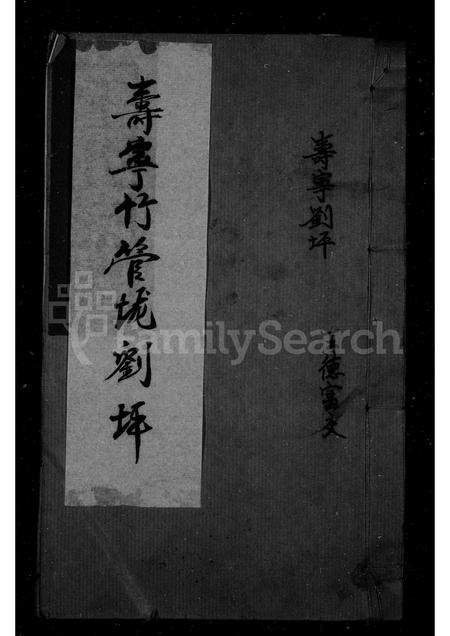 壽寧劉坪
德富支
壽寧竹管垅劉坪
FamilySearch